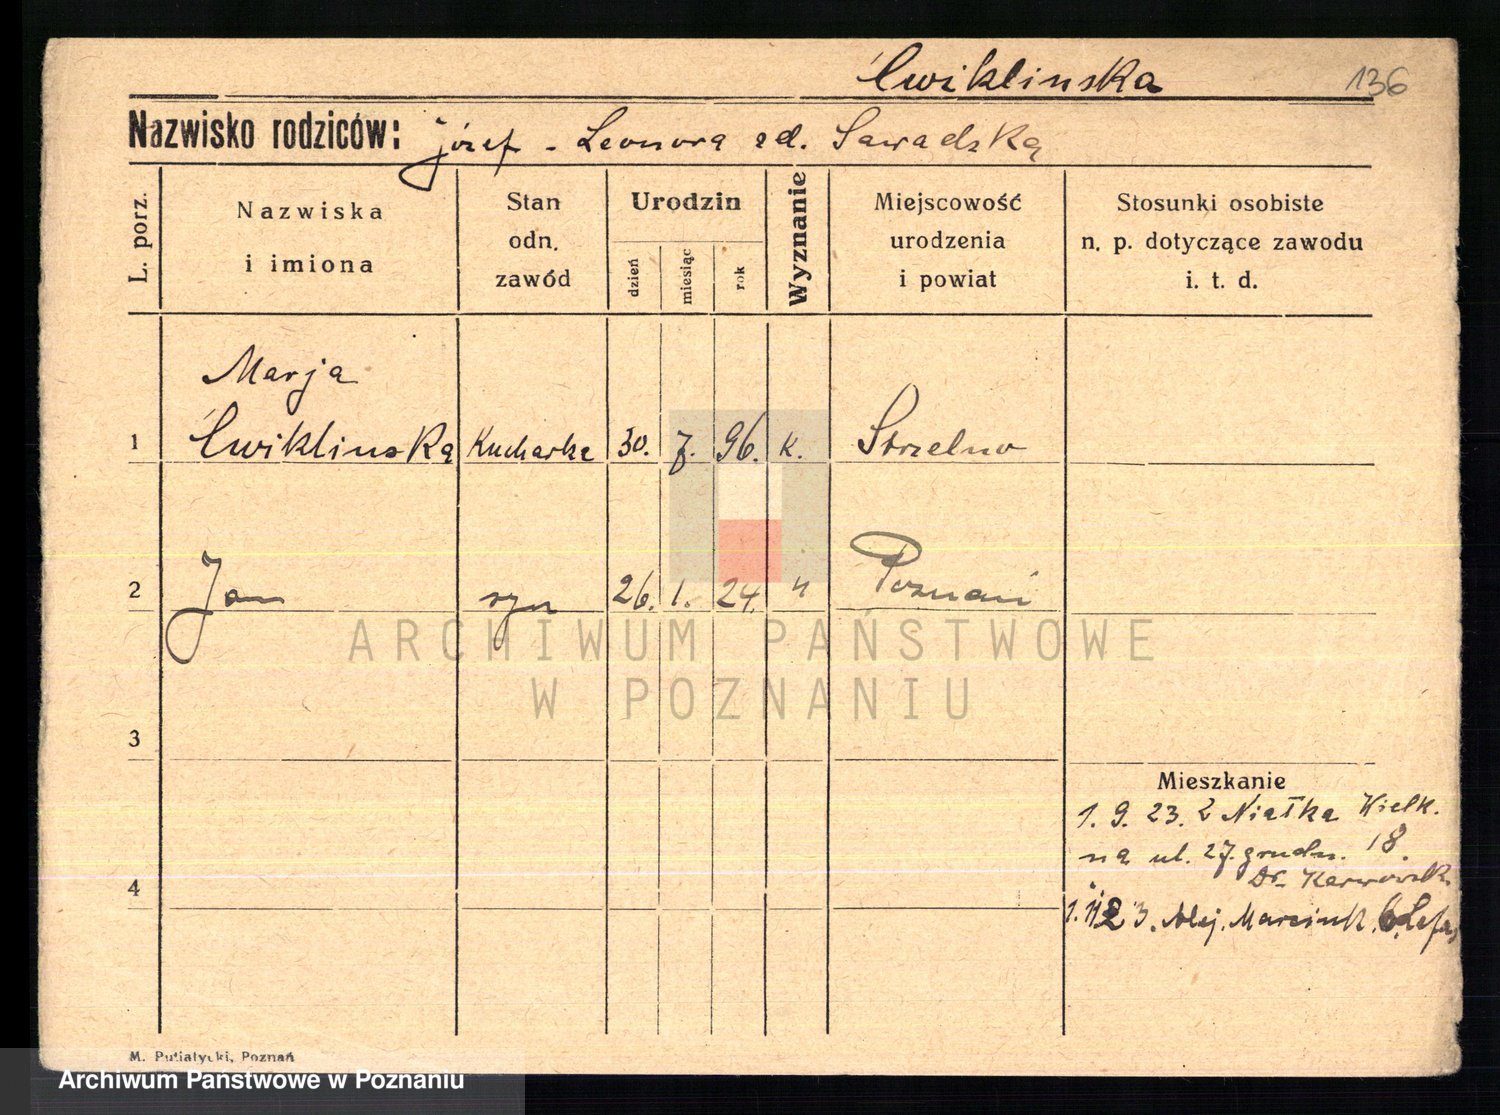 Ćwiklinska 136
Nazwisko rodziców: Józef - Leonora zd. Sawadzką
L. porz.
Nazwiska
i imiona
Stan
odn.
zawód
Urodzin
dzień
miesiąc
rok
Wyznanie
Miejscowość
urodzenia
i powiat
Stosunki osobiste
n. p. dotyczące zawodu
i. t. d.
Marja
1 Ćwiklinską Kucharka 30. 7. 96. K. Strzelno
2 Jan syn 26. 1. 24. " Poznań
ARCHIWUM PAŃSTWOWE
W POZNANIU
3
Mieszkanie
1. 9. 23. z Niałka Wielk.
na ul. 27. grudn. 18.
Dr. Karwowsk
4
1. 12 3. Alej. Marcink. 6.
M. Putiatycki, Poznań
Archiwum Państwowe w Poznaniu